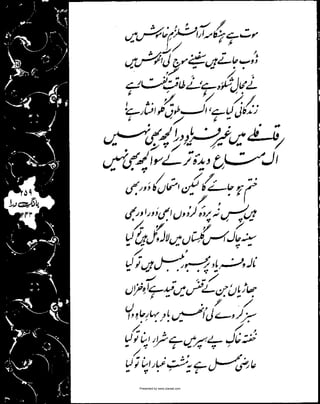 موت ہے ہنگامہ آرا قلزمِ خاموش میں
ڈوب جاتے ہیں سفینے موج کی آغوش میں
نے مجالِ شکوہ ہے، نے طاقتِ گفتار ہے
زندگانی کیا ہے، اک طوقِ گلو افشار ہے!
قافلے میں غیرِ فریادِ درا کچھ بھی نہیں
اک متاعِ دیدۂ تر کے سوا کچھ بھی نہیں
ختم ہو جائے گا لیکن امتحاں کا دَور بھی
ہیں پسِ نُہ پردۂ گردوں ابھی دَور اور بھی
سینہ چاک اس گلستاں میں لالہ و گل ہیں تو کیا
نالہ و فریاد پر مجبور بلبل ہیں تو کیا
جھاڑیاں، جن کے قفس میں قید ہے آہِ خزاں
سبز کر دے گی انھیں بادِ بہارِ جاوداں
خفتہ خاکِ پے سپر میں ہے شرار اپنا تو کیا
عارضی محمل ہے یہ مشتِ غبار اپنا تو کیا
۲۵۹
بانگِ درا
۲۴۳
Presented by www.ziaraat.com